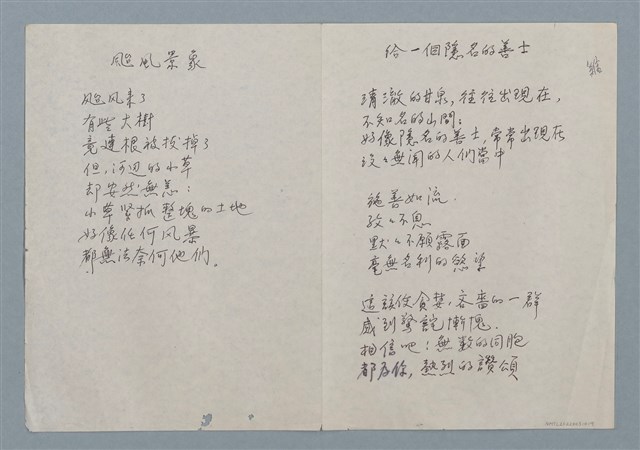 颱風景象
颱风来了
有些大樹
竟連根被拔掉了
但,河辺的小草
却安然無恙:
小草緊抓整塊的土地
好像任何风景
都無法奈何他們。
給一個隱名的善士
清澈的甘泉,往往出現在,
不知名的山間:
好像隱名的善士,常常出現在
没々無聞的人們當中
從善如流.
孜々不息
默々不願露面
毫無名利的慾望
這該使貪婪,吝嗇的一群
感到驚詫慚愧.
相信吧!無数的同胞
都為你,熱烈的讚頌